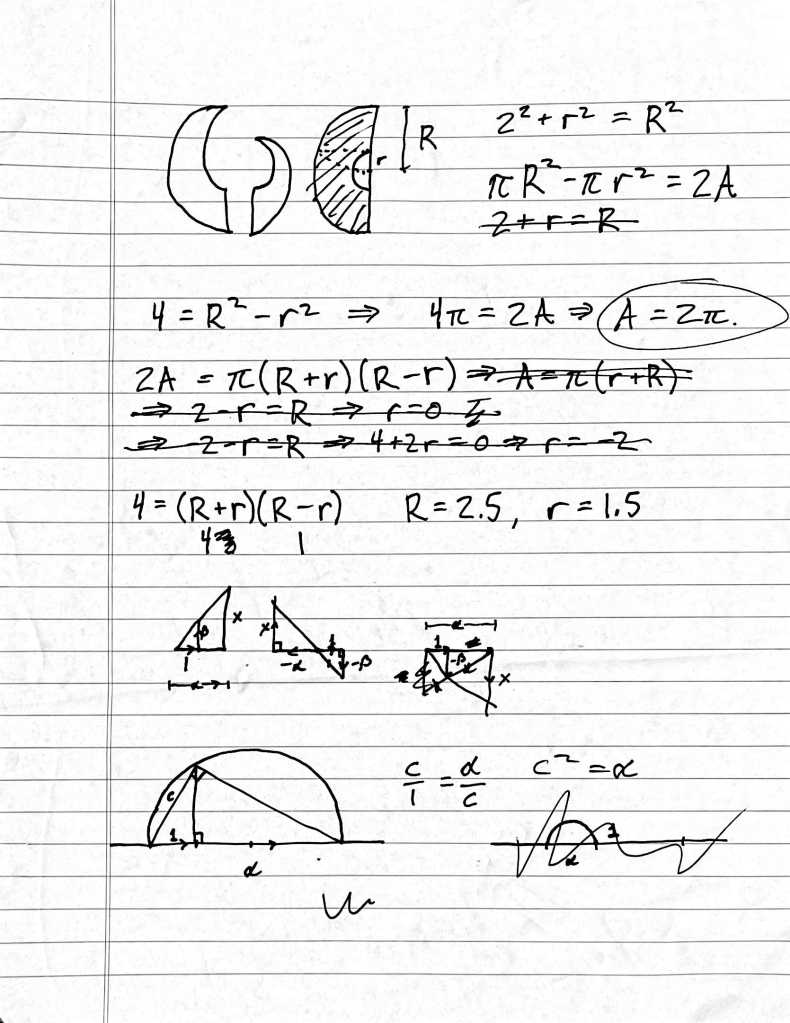 R r
2² + r² = R²
πR² - πr² = 2A
2 + r = R
4 = R² - r² ⇒ 4π = 2A ⇒ A = 2π.
2A = π(R+r)(R-r) ⇒ A = π(r+R)
⇒ 2 - r = R ⇒ r = 0
⇒ 2 - r = R ⇒ 4 + 2r = 0 ⇒ r = -2
4 = (R+r)(R-r) R = 2.5, r = 1.5
4 1
β x 1 α
x -α 1 -β
α 1 -β α x
c 1 α
c/1 = α/c c² = α
α 1